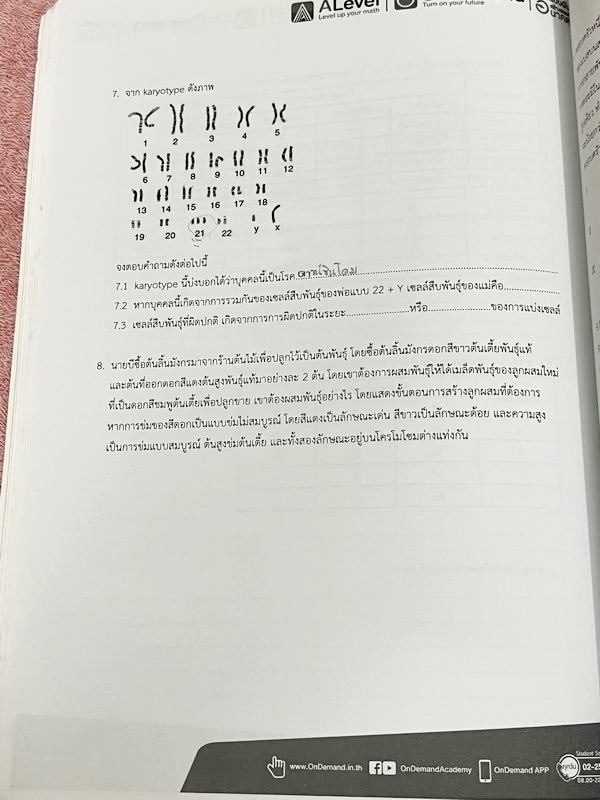 ALevel
Level up your math
Turn on your future
7. จาก karyotype ดังภาพ
1 2 3 4 5
6 7 8 9 10 11 12
13 14 15 16 17 18
19 20 21 22 y x
จงตอบคำถามดังต่อไปนี้
7.1 karyotype นี้บ่งบอกได้ว่าบุคคลนี้เป็นโรค...ดาวน์ซินโดรม...
7.2 หากบุคคลนี้เกิดจากการรวมกันของเซลล์สืบพันธุ์ของพ่อแบบ 22 + Y เซลล์สืบพันธุ์ของแม่คือ...
7.3 เซลล์สืบพันธุ์ที่ผิดปกติ เกิดจากการการผิดปกติในระยะ...หรือ...ของการแบ่งเซลล์
8. นายบีซื้อต้นลิ้นมังกรมาจากร้านต้นไม้เพื่อปลูกไว้เป็นต้นพันธุ์ โดยซื้อต้นลิ้นมังกรดอกสีขาวต้นเตี้ยพันธุ์แท้
และต้นที่ออกดอกสีแดงต้นสูงพันธุ์แท้มาอย่างละ 2 ต้น โดยเขาต้องการผสมพันธุ์ให้ได้เมล็ดพันธุ์ของลูกผสมใหม่
ที่เป็นดอกสีชมพูต้นเตี้ยเพื่อปลูกขาย เขาต้องผสมพันธุ์อย่างไร โดยแสดงขั้นตอนการสร้างลูกผสมที่ต้องการ
หากการข่มของสีดอกเป็นแบบข่มไม่สมบูรณ์ โดยสีแดงเป็นลักษณะเด่น สีขาวเป็นลักษณะด้อย และความสูง
เป็นการข่มแบบสมบูรณ์ ต้นสูงข่มต้นเตี้ย และทั้งสองลักษณะอยู่บนโครโมโซมต่างแท่งกัน
www.OnDemand.in.th
OnDemandAcademy
OnDemand APP